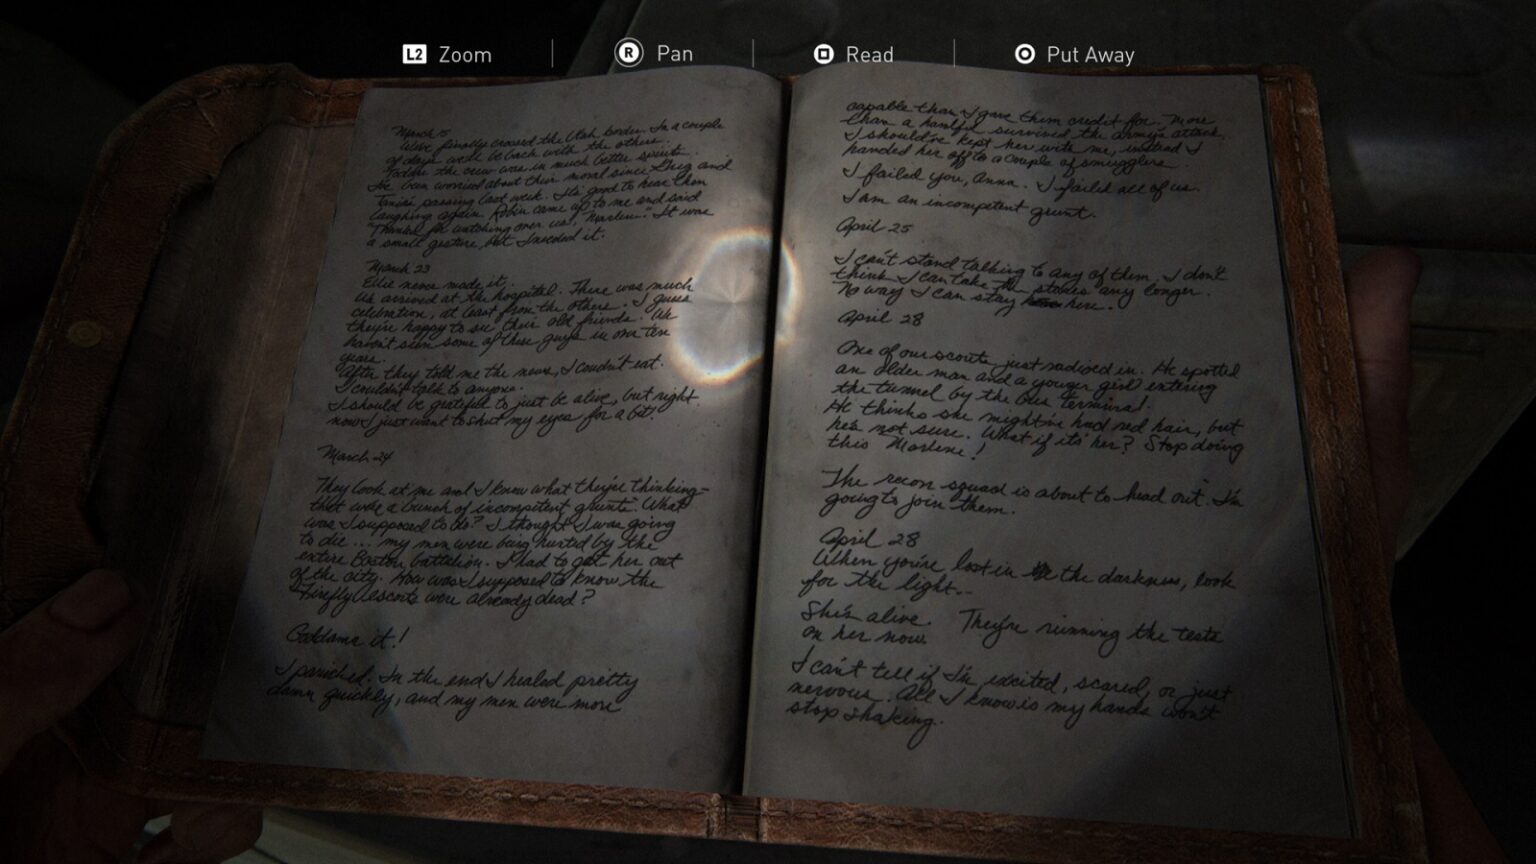 L2 Zoom
R Pan
Read
Put Away
March 15
We've finally crossed the Utah border. In a couple
of days we'll be back with the others.
Today the crew was in much better spirits.
I've been worried about their moral since Greg and
passing last week. It's good to hear them
laughing again. Robin came up to me and said
"Thanks for watching over us, Marlene." It was
a small gesture, but I needed it.
March 23
Ellie never made it.
We arrived at the hospital. There was much
celebration, at least from the others. I guess
they're happy to see their old friends. We
haven't seen some of these guys in over ten
years.
After they told me the news, I couldn't eat.
I couldn't talk to anyone.
I should be grateful to just be alive, but right
now I just want to shut my eyes for a bit.
March 24
They look at me and I know what they're thinking-
that we're a bunch of incompitent grunts. What
was I supposed to do? I thought I was going
to die... my men were being hunted by the
entire Boston battelion. I had to get her out
of the city. How was I supposed to know the
Firefly escorts were already dead?
Goddamn it!
I panicked. In the end I healed pretty
damn quickly, and my men were more
capable than I gave them credit for. More
than a handful survived the army's attack.
I should've kept her with me, instead I
handed her off to a couple of smugglers.
I failed you, Anna. I failed all of us.
I am an incompetent grunt.
April 25
I can't stand talking to any of them. I don't
think I can take the stares any longer.
No way I can stay here.
April 28
One of our scouts just radioed in. He spotted
an older man and a younger girl entering
the tunnel by the bus terminal.
He thinks she might've had red hair, but
he's not sure. What if it's her? Stop doing
this Marlene!
The recon squad is about to head out. I'm
going to join them.
April 28
When you're lost in the darkness, look
for the light...
She's alive. They're running the tests
on her now.
I can't tell if I'm excited, scared, or just
nervous. All I know is my hands won't
stop shaking.